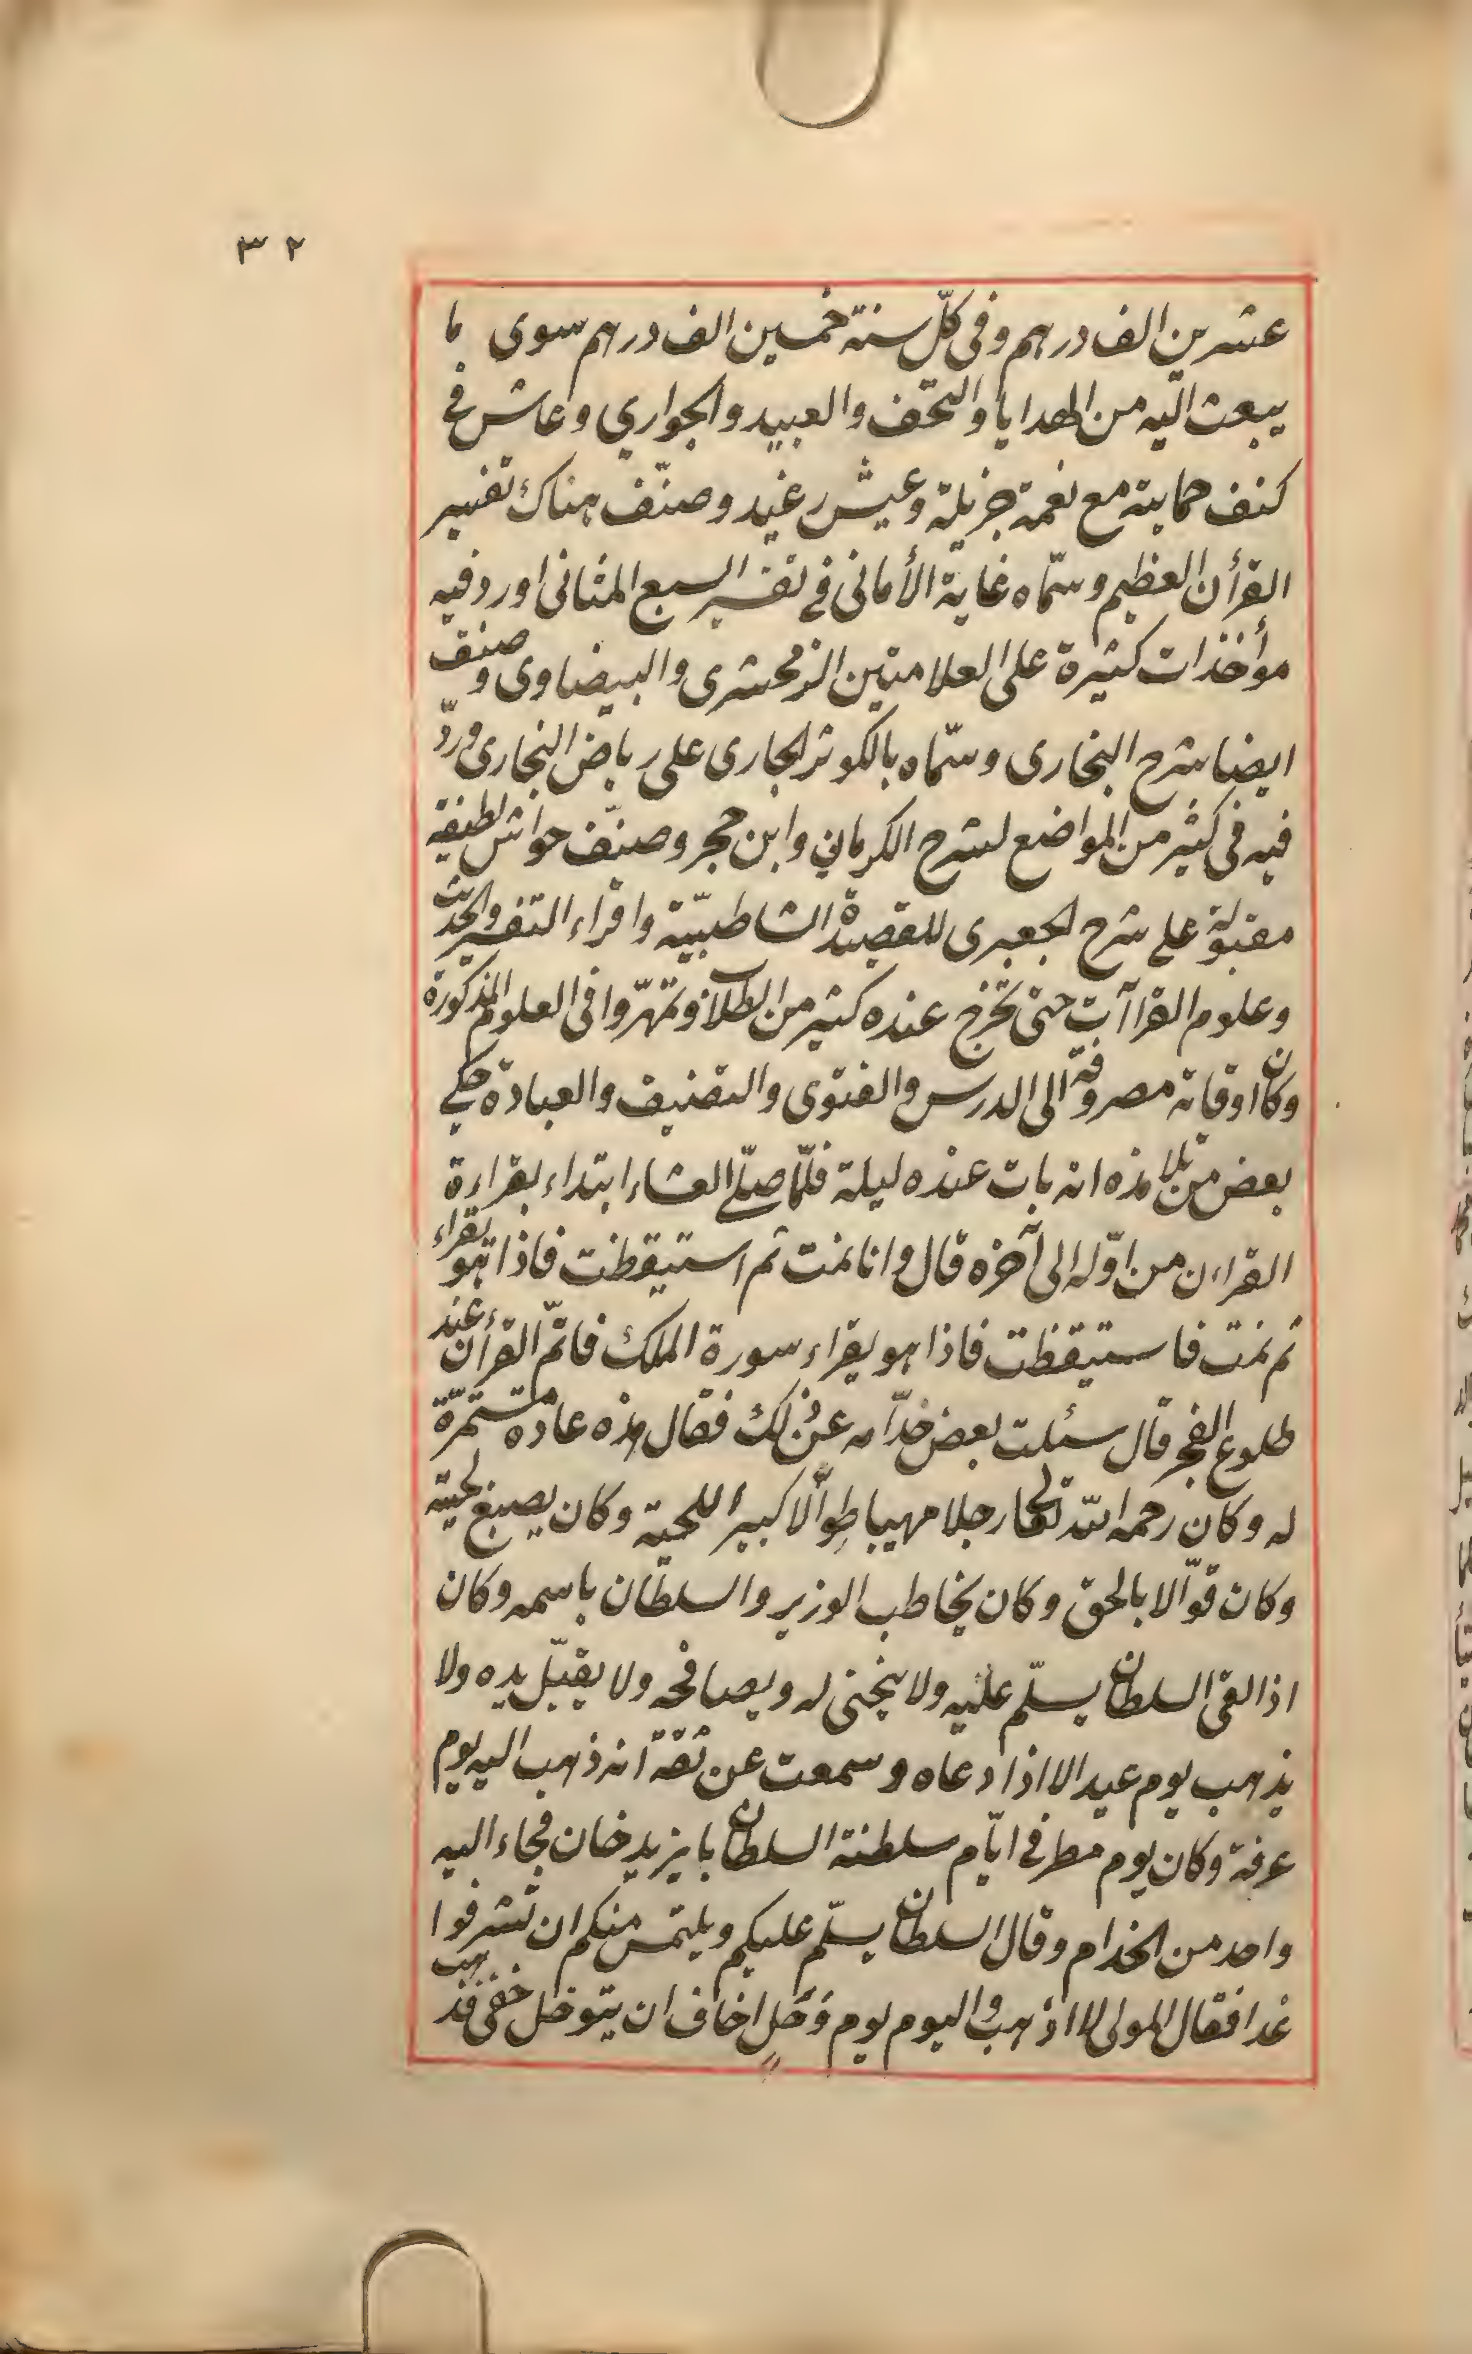 ٣٢
عشرين الف درهم وفى كلّ سنة خمسين الف درهم سوى ما
يبعث اليه من الهدايا والتحّف والعبيد والجواري وعاش في
كنف حمايته مع نعمة جزيلة وعيش رغيد وصنّف هناك تفسير
القرأن العظيم وسمّاه غاية الأمانى في تفسير السبع المثانى اورد فيه
موأخذات كثيرة على العلامتين الزمخشرى والبيضاوى وصنف
ايضا شرح البخارى وسمّاه بالكوثر الجارى على رياض البخارى وردّ
فيه فى كثير من المواضع لشرح الكرماني وابن حجر وصنّف حواش لطيفة
مقبولة على شرح الجعبرى للقصيدة الشاطبيّة واقراء التفسير والحديث
وعلوم القراآت حتى تخرج عنده كثير من الطلاب وتمهّروا فى العلوم المذكورة
وكان اوقاته مصروفة الى الدرس والفتوى والتصنيف والعبادة حكي
بعض من تلامذه انه بات عنده ليلة فلمّا صلّى العشاء ابتداء بقراءة
القراءن من اوّله الى آخره قال وانا نمت ثم استيقظت فاذا هو يقراء
ثم نمت فاستيقظت فاذا هو يقراء سورة الملك فاتمّ القرأن عند
طلوع الفجر قال سئلت بعض خدّامه عن ذلك فقال هذه عادة مستمرّة
له وكان رحمه الله تعالى رجلا مهيبا طِوالًا كبير اللحية وكان يصبغ لحيته
وكان قوّالا بالحق وكان يخاطب الوزير والسلطان باسمه وكان
اذا لقى السلطان يسلّم عليه ولا ينحنى له ويصافحه ولا يقبّل يده ولا
يذهب يوم عيد الا اذا دعاه وسمعت عن ثقة انه ذهب اليه يوم
عرفة وكان يوم مطر في ايّام سلطنة السلطان بايزيد خان فجاء اليه
واحد من الخدام وقال السلطان يسلّم عليكم ويلتمس منكم ان تشرفوا
غدا فقال المولى لا اذهب واليوم يوم وَحَلٍ اخاف ان يتوحل خفى فذهب